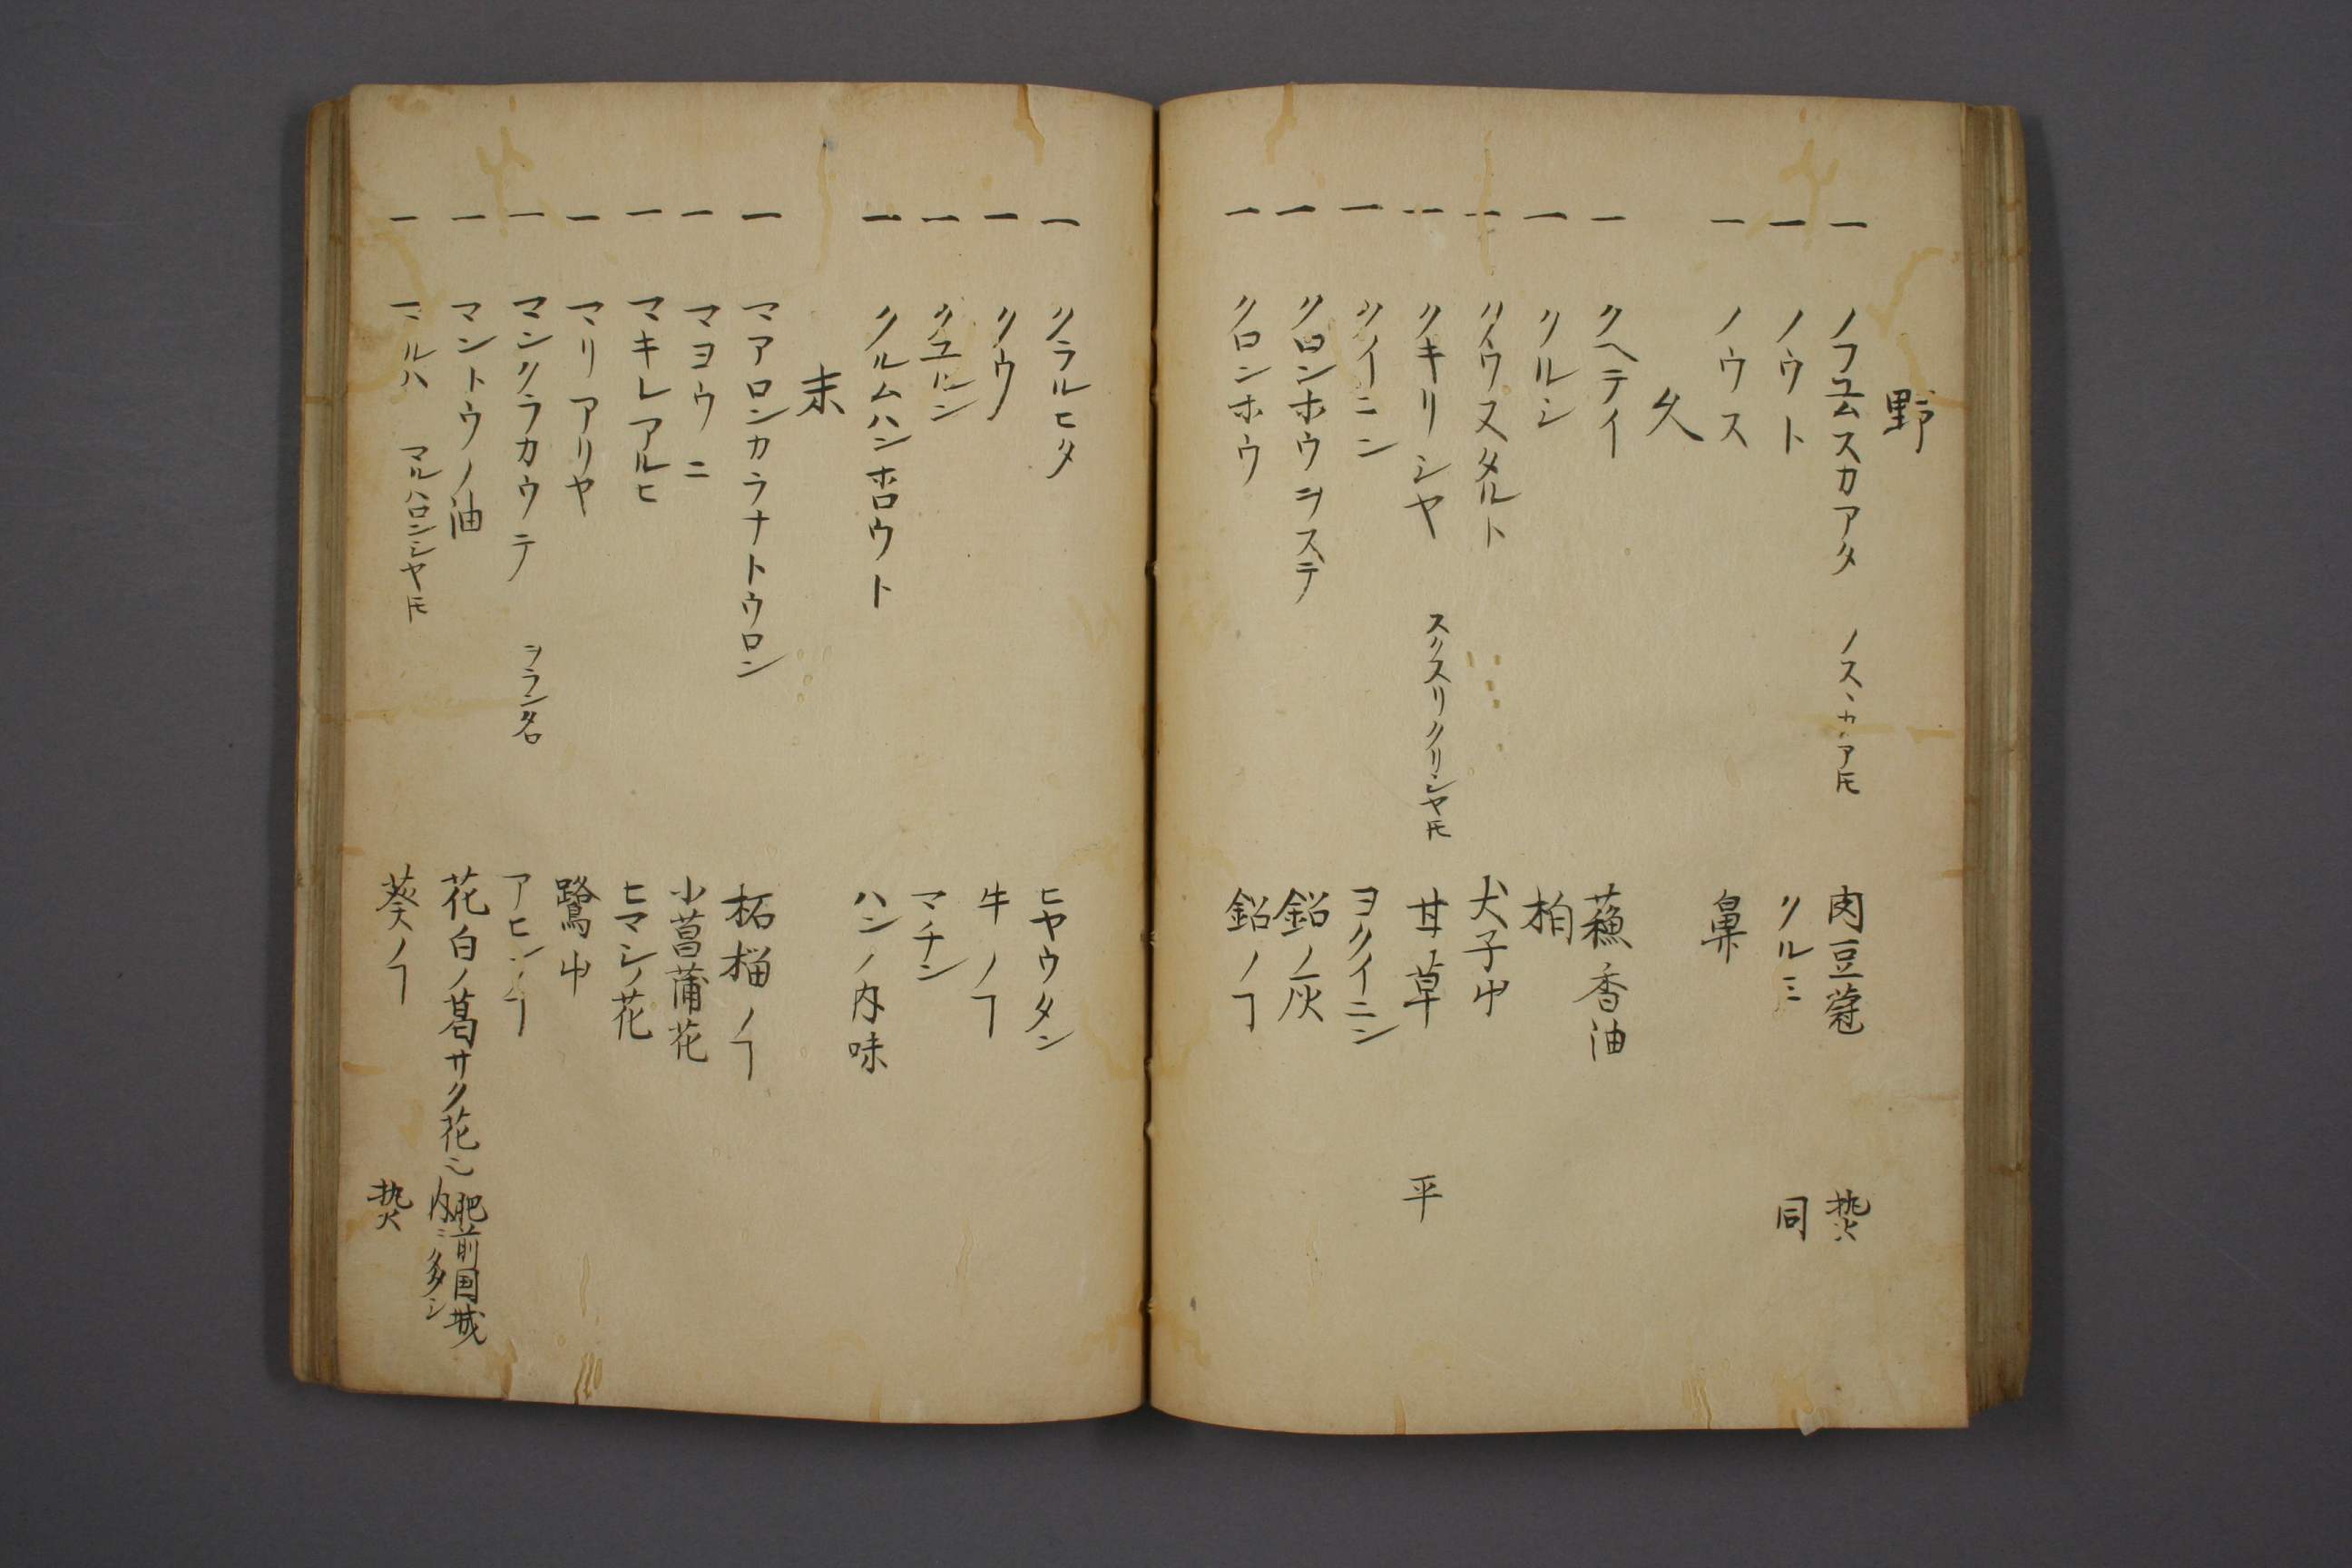 野
一 ノフユムスカアタ ノスヽカヽア𪜈 肉豆蔲 熱
一 ノウト クルミ 同
一 ノウス 鼻
久
一 クヘテイ 蘓香油
一 クルシ 柏
一 クウスタルト 犬子虫
一 クキリシヤ スクスリクリシヤ𪜈 甘草 平
一 クイニン ヨクイニン
一 クロンホウヲステ 鉛ノ灰
一 クロンホウ 鉛ノヿ
一 クラルヒタ ヒヤウタン
一 クウ 牛ノヿ
一 クユルシ マチン
一 クルムハンホロウト ハンノ内味
末
一 マアロンカラナトウロン 柘榴ノヿ
一 マヨウニ 小菖蒲花
一 マキレアルヒ ヒマシノ花
一 マリアリヤ 鷺虫
一 マンクラカウテ ヲランタ名 アヒンノヿ
一 マントウノ油 花白ノ葛サク花ニ 肥前国城内ニ多シ
一 マルハ マルハロンシヤ𪜈 葵ノヿ 熱